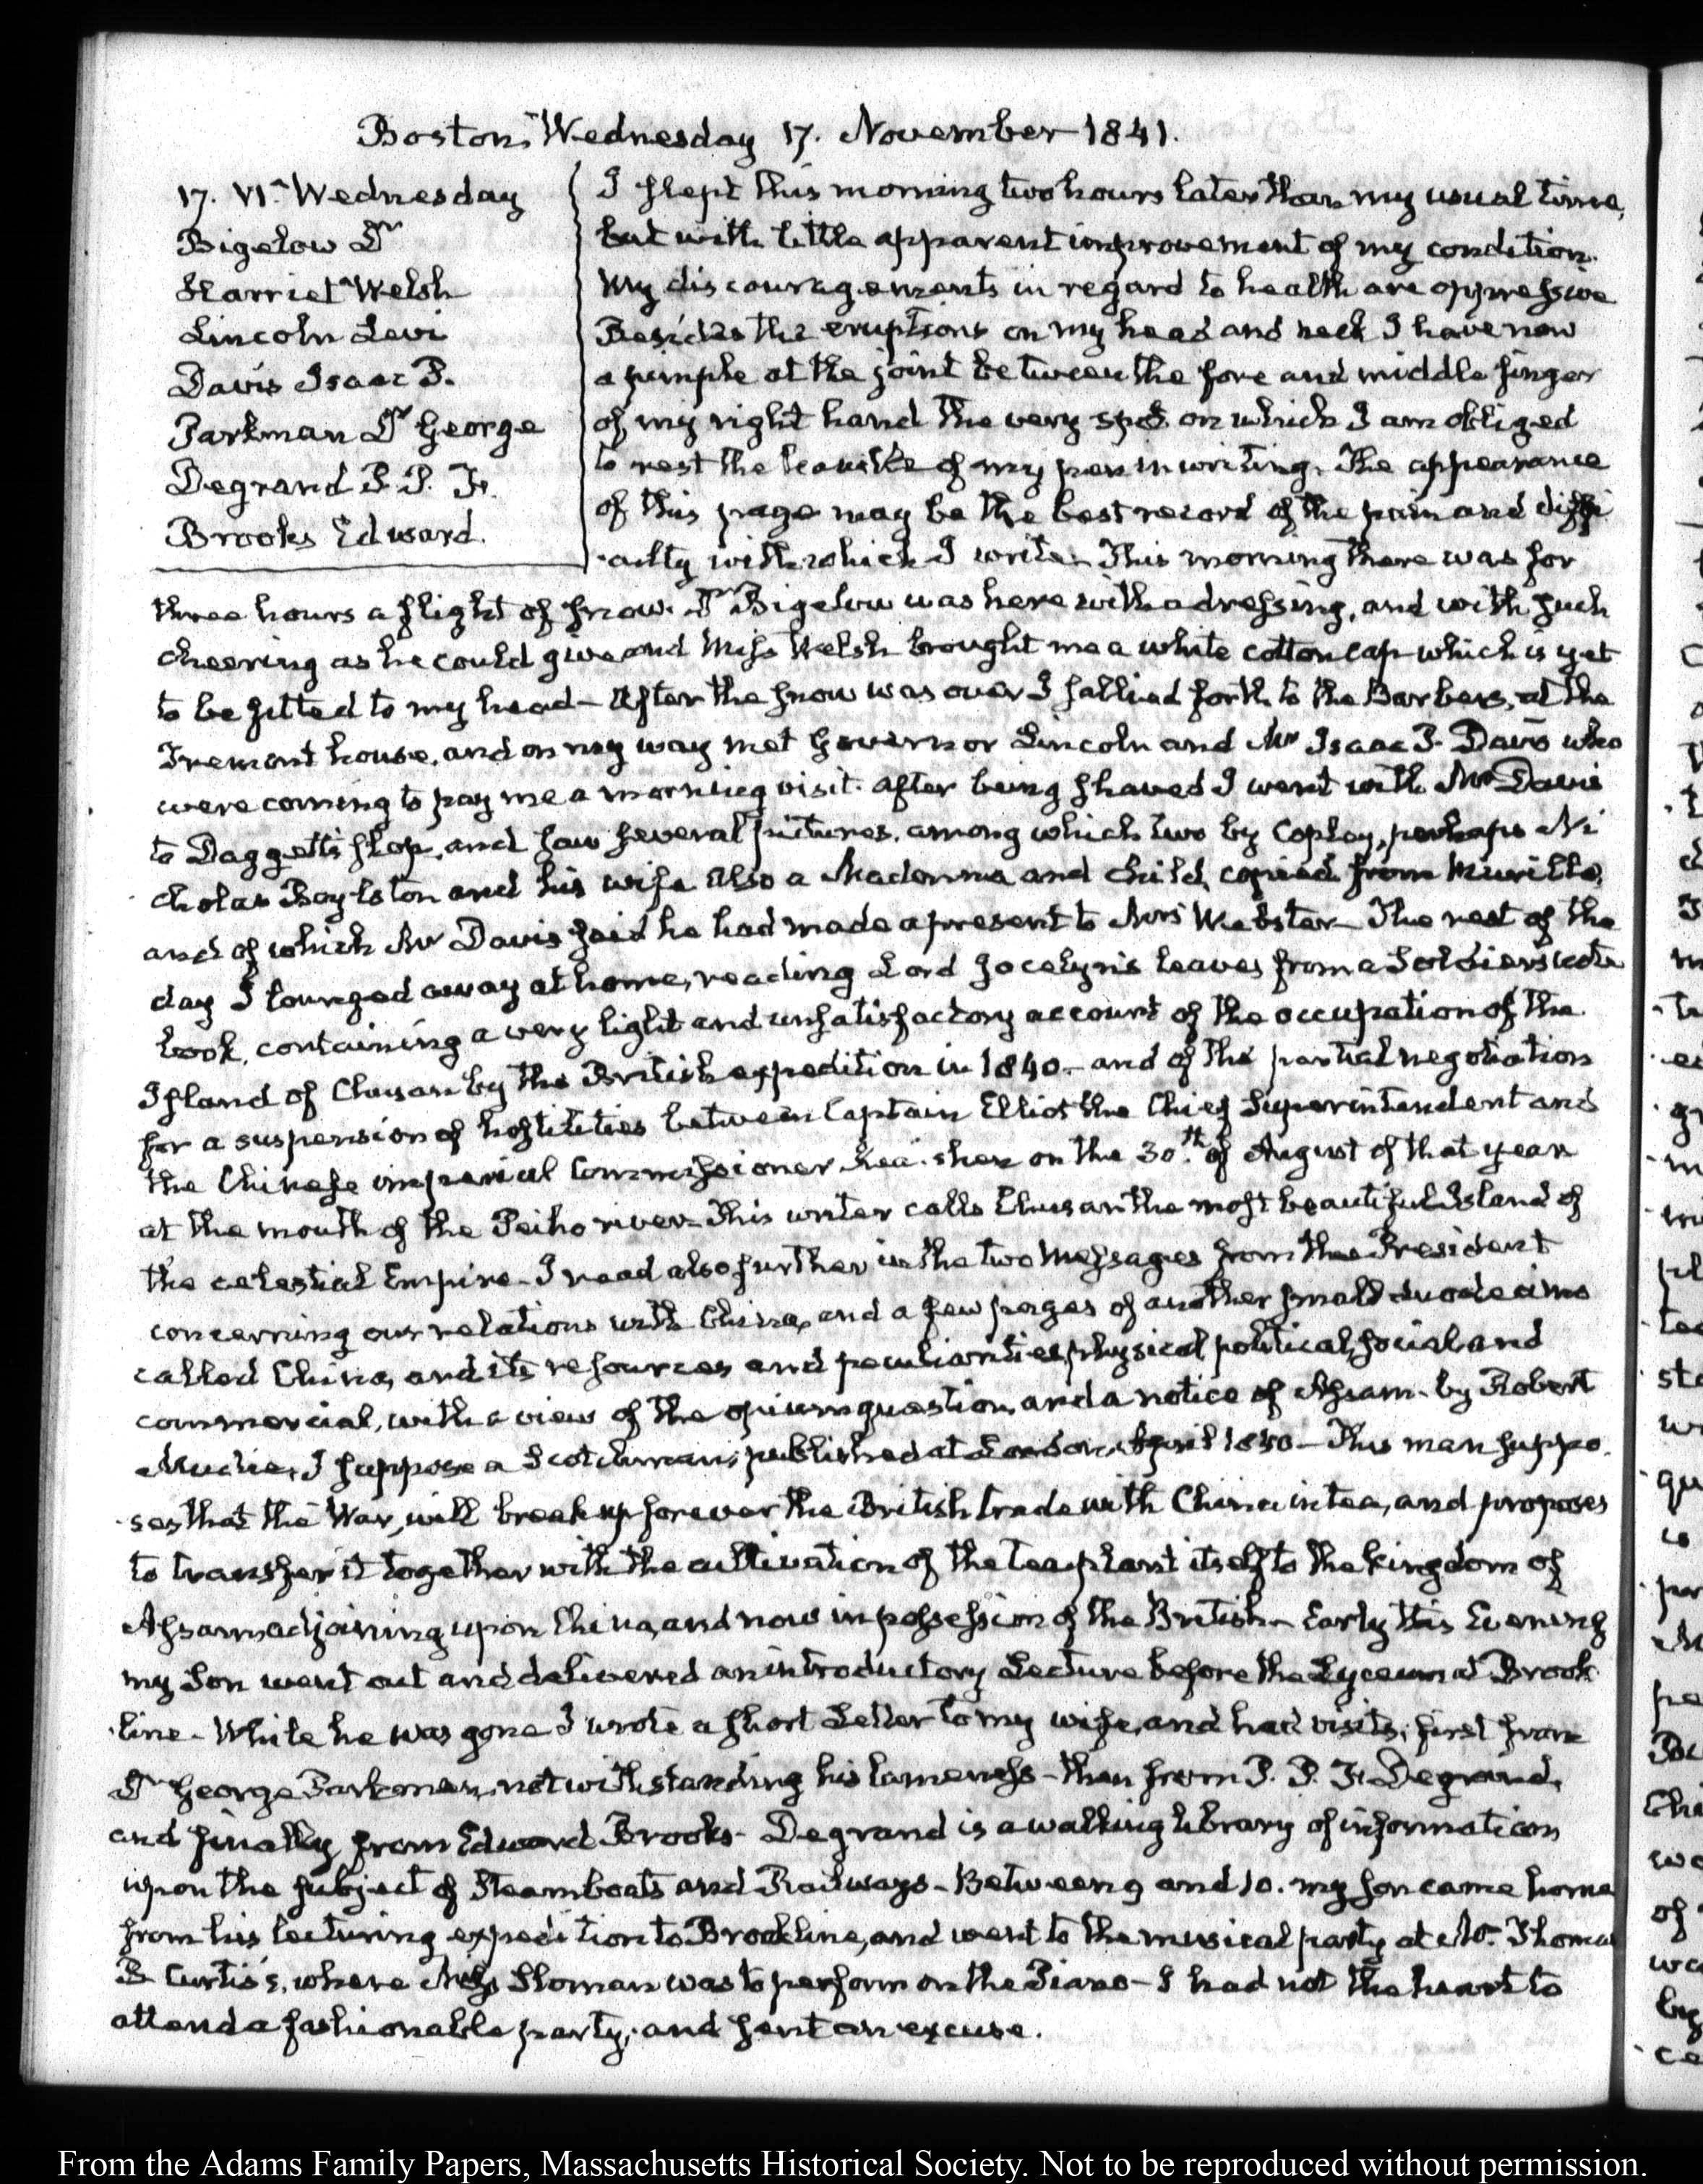 Boston, Wednesday 17. November 1841.
17. VI. Wednesday
Bigelow Dr
Harriet Welsh
Lincoln Levi
Davis Isaac P.
Parkman Dr George
Degrand P. P. F.
Brooks Edward.
I slept this morning two hours later than my usual time,
but with little apparent improvement of my condition.
My discouragements in regard to health are oppressive
Besides the eruptions on my head and neck I have now
a pimple at the joint between the fore and middle finger
of my right hand the very spot on which I am obliged
to rest the of my pen in writing. The appearance
of this page may be the best record of the pain and diffi
-culty with which I write. This morning there was for
three hours a flight of snow. Dr Bigelow was here with a dressing, and with such
cheering as he could give and Miss Welsh brought me a white cotton cap which is yet
to be fitted to my head – After the snow was over I sallied forth to the Barbers, at the
Tremont house, and on my way met Governor Lincoln and Mr Isaac P. Davis who
were coming to pay me a morning visit. after being shaved I went with Mr Davis
to Daggett's shop, and saw several pictures. among which two by Copley, perhaps Ni
cholas Boylston and his wife also a Madonna and Child, copied from Murillo,
and of which Mr Davis said he had made a present to Mrs Webster – The rest of the
day I lounged away at home, reading Lord Jocelyn's leaves from a Soldiers note
book, containing a very light and unsatisfactory account of the occupation of the
Island of Chusan by the British expedition in 1840 – and of the partial negotiation
for a suspension of hostilities between Captain Elliot the Chief Superintendent and
the Chinese imperial Commissioner Kea-shen on the 30.th of August of that year
at the mouth of the Peiho river – This writer calls Chusan the most beautiful Island of
the celestial Empire – I read also further in the two Messages from the President
concerning our relations with China, and a few pages of another small duodecimo
called China, and its resources and peculiarities, physical political, social and
commercial, with a view of the opium question, and a notice of Assam – by Robert
Mudie, I suppose a Scotchman; published at London, April 1840 – This man suppo
-ses that the War, will break up forever the British trade with China in tea, and proposes
to transfer it together with the cultivation of the tea plant itself to the kingdom of
Assam adjoining upon China, and now in possession of the British – Early this Evening
my Son went out and delivered an introductory Lecture before the Lyceum at Brook
-line – While he was gone I wrote a short Letter to my wife, and had visits; first from
Dr George Parkman, notwithstanding his lameness – then from P. P. F. Degrand,
and finally from Edward Brooks – Degrand is a walking library of information
upon the subject of Steamboats and Railways – Between 9 and 10. my son came home
from his lecturing expedition to Brookline, and went to the musical party at Mr. Thomas
B Curtis's, where Miss Sloman was to perform on the Piano – I had not the heart to
attend a fashionable party, and sent an excuse.
From the Adams Family Papers, Massachusetts Historical Society. Not to be reproduced without permission.